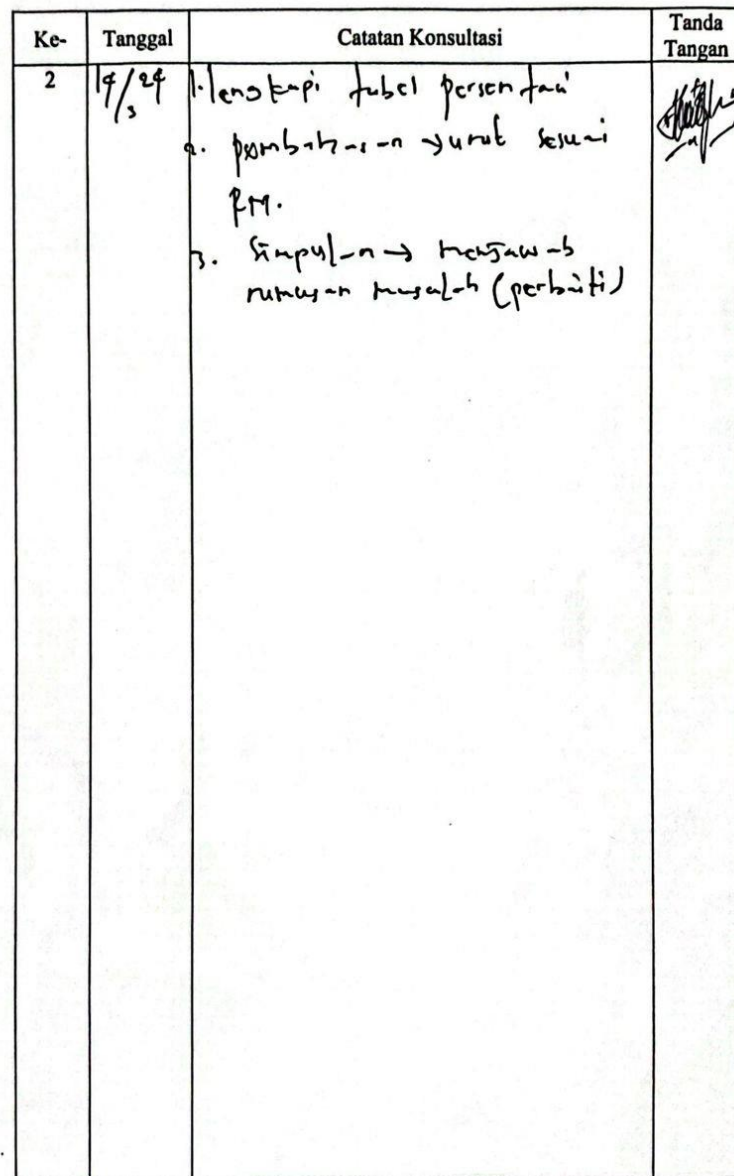 Ke- Tanggal Catatan Konsultasi Tanda Tangan
2 14/3 24 1. lengkapi tabel persentasi
2. pembahasan → urut sesuai
RM.
3. Simpulan → menjawab
rumusan masalah (perbaiki)